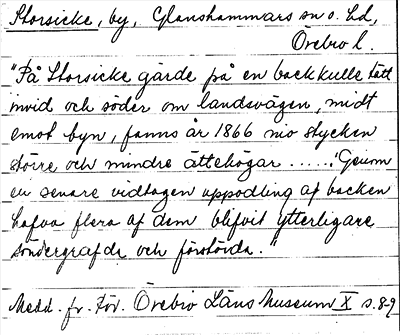 Storsicke, by, Glanshammars sn o. hd,
Örebro l.
"På Storsicke gärde på en backkulle tätt
invid och söder om landsvägen, midt
emot byn, fanns år 1866 nio stycken
större och mindre ättehögar ......: Genom
en senare vidtagen uppodling af backen
hafva flera af dem blifvit ytterligare
söndergrafda och förstörda."
Medd. fr. För. Örebro Läns Museum X s. 8-9